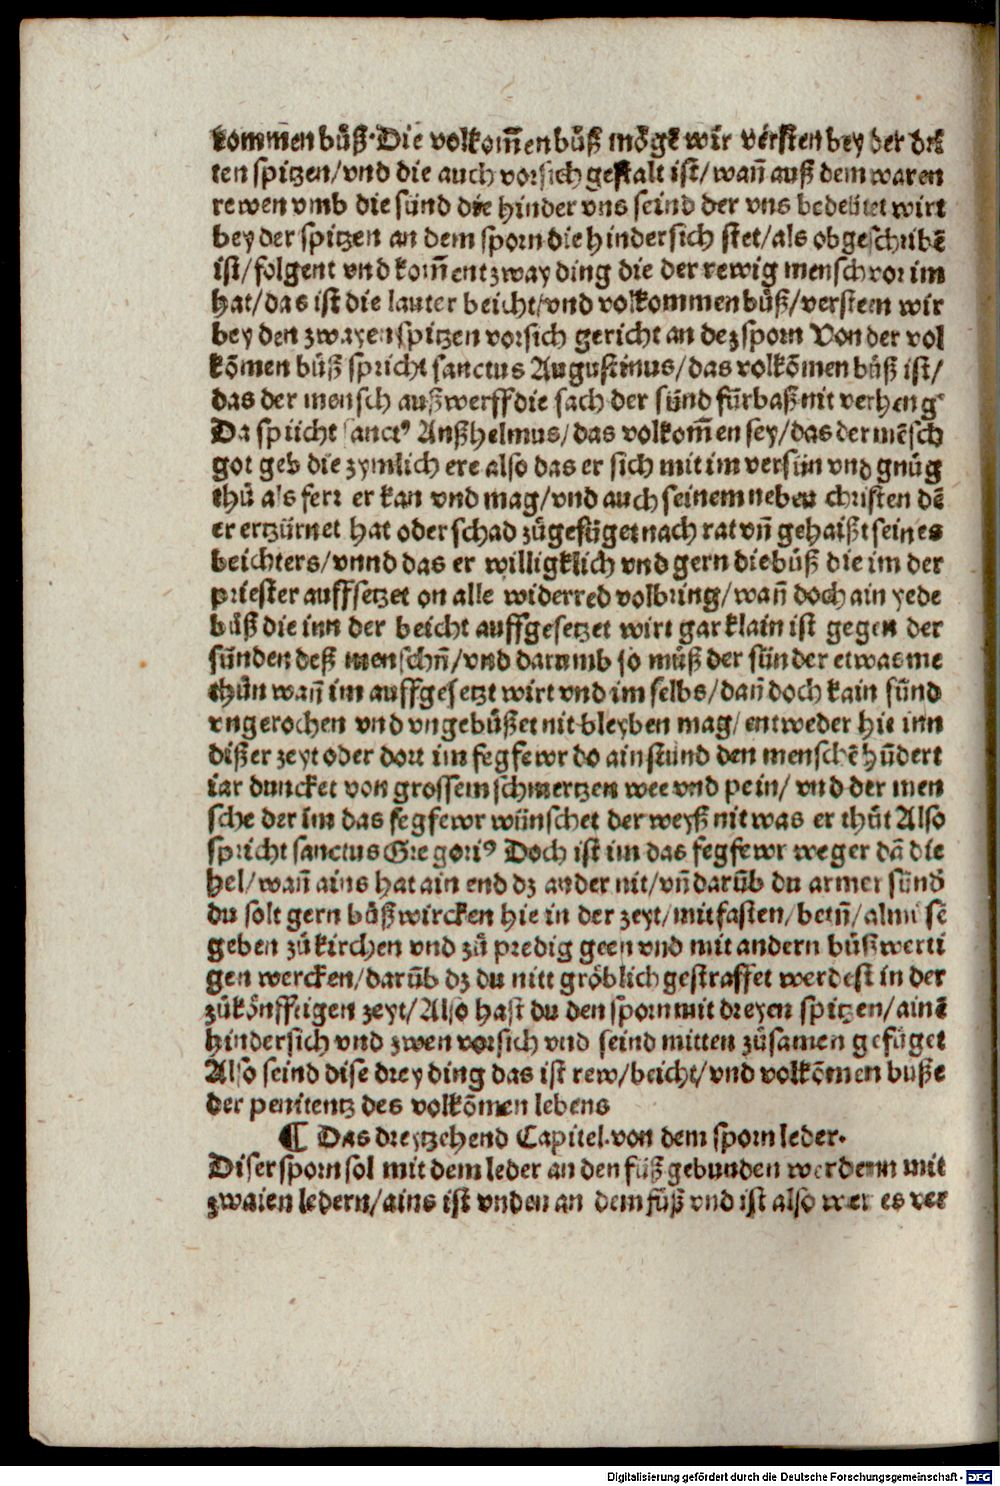 kommen bůß·Die volkom̃en bůß mőgẽ wir versten bey der drit
ten spitzen/vnd die auch vorsich gestalt ist/wañ auß dem waren
rewen vmb die sünd die hinder vns seind der vns bedeütet wirt
bey der spitzen an dem sporn die hindersich stet/als obgeschribẽ
ist/folgent vnd kom̃ent zway ding die der rewig mensch vor im
hat/das ist die lauter beicht/vnd volkommen bůß/versteen wir
bey den zwayen spitzen vorsich gericht an dez sporn Von der vol
kõmen bůß spricht sanctus Augustinus/das volkõmen bůß ist/
das der mensch außwerff die sach der sünd fürbaß nit verheng
Da spricht sanctꝰ Anßhelmus/das volkom̃en sey/das der mẽsch
got geb die zymlich ere also das er sich mit im versün vnd gnůg
thů als ferr er kan vnd mag/vnd auch seinem neben christen dẽ
er ertzürnet hat oder schad zůgefüget nach rat vñ gehaißt seines
beichters/vnnd das er willigklich vnd gern die bůß die im der
priester auffsetzet on alle widerred volbring/wañ doch ain yede
bůß die inn der beicht auffgesetzet wirt gar klain ist gegen der
sünden deß menschñ/vnd darumb so můß der sünder etwas me
thůn wañ im auffgesetzt wirt vnd im selbs/dañ doch kain sünd
vngerochen vnd vngebůßet nit bleyben mag/entweder hie inn
dißer zeyt oder dort im fegfewr do ain stund den menschẽ hũdert
iar duncket von grossem schmertzen wee vnd pein/vnd der men
sche der im das fegfewr wünschet der weyß nit was er thůt Also
spricht sanctus Gregoriꝰ Doch ist im das fegfewr weger dã die
hel/wañ ains hat ain end dz ander nit/vñ darũb du armer sünd̃
du solt gern bůß wircken hie in der zeyt/mit fasten/betñ/almůsẽ
geben zů kirchen vnd zů predig geen vnd mit andern bůßwerti
gen wercken/darũb dz du nitt gröblich gestraffet werdest in der
zůkönfftigen zeyt/Also hast du den sporn mit dreyen spitzen/ainẽ
hindersich vnd zwen vorsich vnd seind mitten zůsamen gefüget
Also seind dise drey ding das ist rew/beicht/vnd volkõmen buße
der penitentz des volkõmen lebens
¶ Das dreytzehend Capitel.von dem sporn leder.
Diser sporn sol mit dem leder an den fůß gebunden werdenn mit
zwaien ledern/ains ist vnden an dem fůß vnd ist also wer es ver
Digitalisierung gefördert durch die Deutsche Forschungsgemeinschaft - DFG